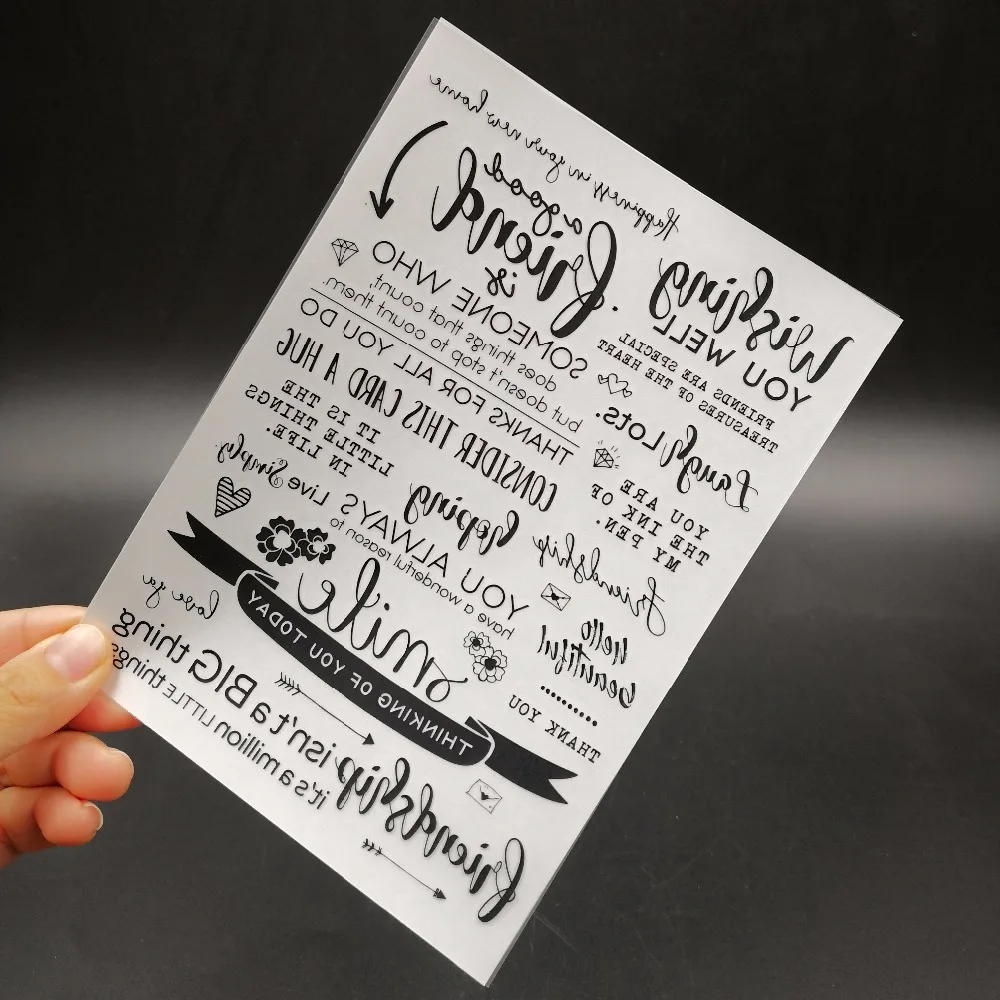 Happiness in your new home
a good
friend
is
SOMEONE WHO
does things that count,
but doesn't stop to count them.
THANKS FOR ALL YOU DO
CONSIDER THIS CARD A HUG
IT IS THE
LITTLE THINGS
IN LIFE.
Live Simply.
Wishing
YOU WELL
FRIENDS ARE SPECIAL
TREASURES OF THE HEART
Laugh Lots.
YOU ARE
THE INK OF
MY PEN.
hoping
YOU ALWAYS
have a wonderful reason to
smile
friendship
hello
beautiful
THANK YOU
THINKING OF YOU TODAY
love ya
friendship isn't a BIG thing
it's a million LITTLE things